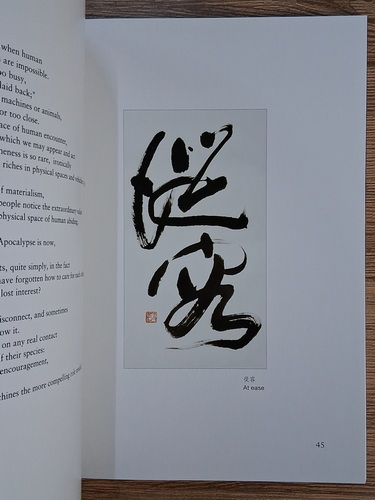 when human
s are impossible.
oo busy,
laid back;"
machines or animals,
or too close.
ace of human encounter,
which we may appear and act
heness is so rare, ironically
riches in physical spaces and
of materialism,
people notice the extraordinary
physical space of human abiding.
Apocalypse is now,
ts, quite simply, in the fact
have forgotten how to care for such
lost interest?
isconnect, and sometimes
ow it.
on any real contact
f their species:
encouragement,
chines the more compelling
從容
從容
At ease
45